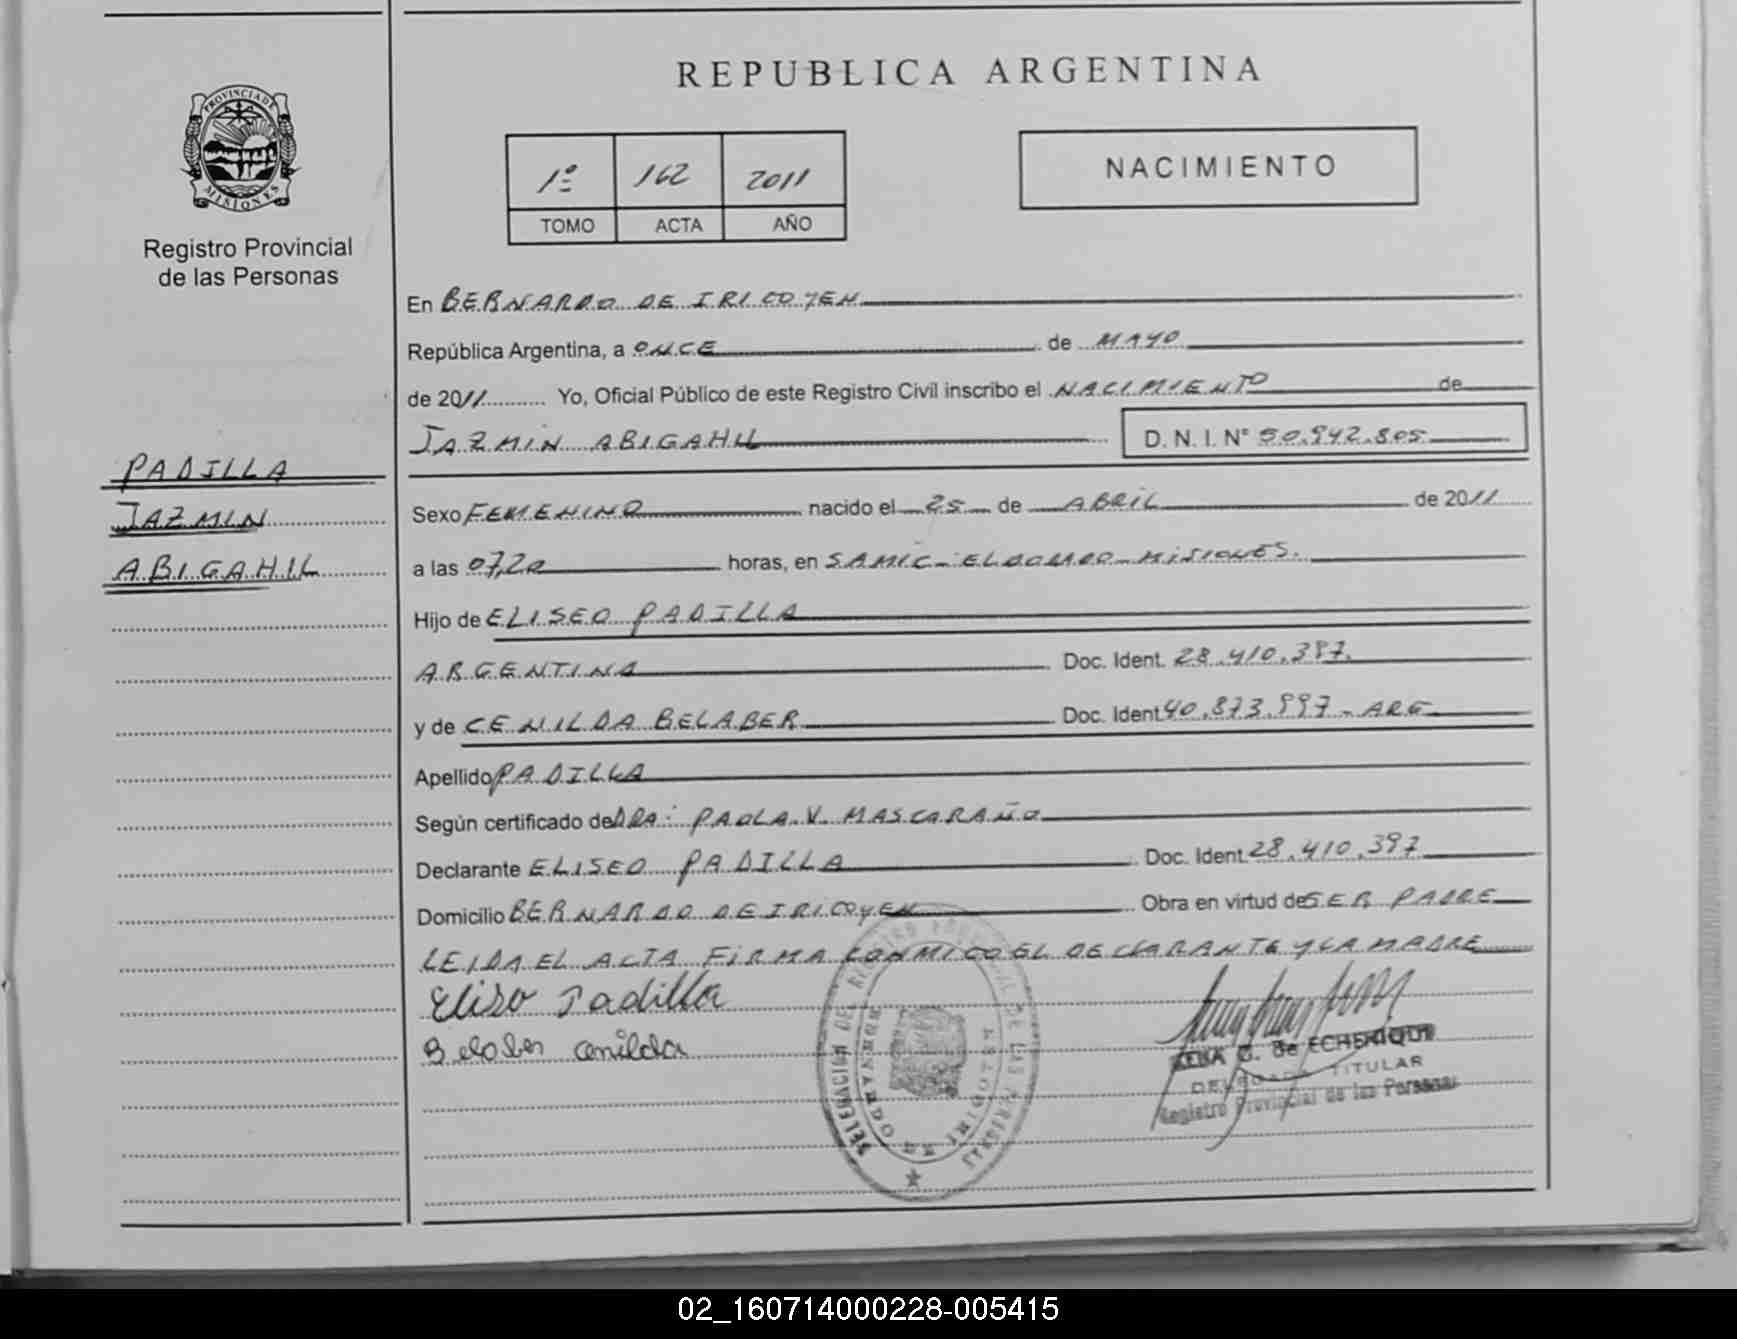 PROVINCIA DE
MISIONES
Registro Provincial
de las Personas
PADILLA
JAZMIN
ABIGAHIL
REPUBLICA ARGENTINA
1º 162 2011
TOMO ACTA AÑO
NACIMIENTO
En BERNARDO DE IRIGOYEN
República Argentina, a ONCE de MAYO
de 2011 Yo, Oficial Público de este Registro Civil inscribo el NACIMIENTO de
JAZMIN ABIGAHIL D. N. I. Nº 50.942.805
Sexo FEMENINO nacido el 25 de ABRIL de 2011
a las 07,20 horas, en SAMIC - ELDORADO - MISIONES.
Hijo de ELISEO PADILLA
ARGENTINA Doc. Ident. 28.410.397.
y de CENILDA BELABER Doc. Ident. 40.873.997 - ARG
Apellido PADILLA
Según certificado de DRA: PAOLA V. MASCARAÑO
Declarante ELISEO PADILLA Doc. Ident. 28.410.397
Domicilio BERNARDO DE IRIGOYEN Obra en virtud de SER PADRE
LEIDA EL ACTA FIRMA CONMIGO EL DECLARANTE Y LA MADRE
Eliso Padilla
Belober Cenilda
DELEGACION DEL REGISTRO PROVINCIAL DE LAS PERSONAS
BERNARDO DE IRIGOYEN
G. de ECHERIQUE
DELEGADA TITULAR
Registro Provincial de las Personas
02_160714000228-005415